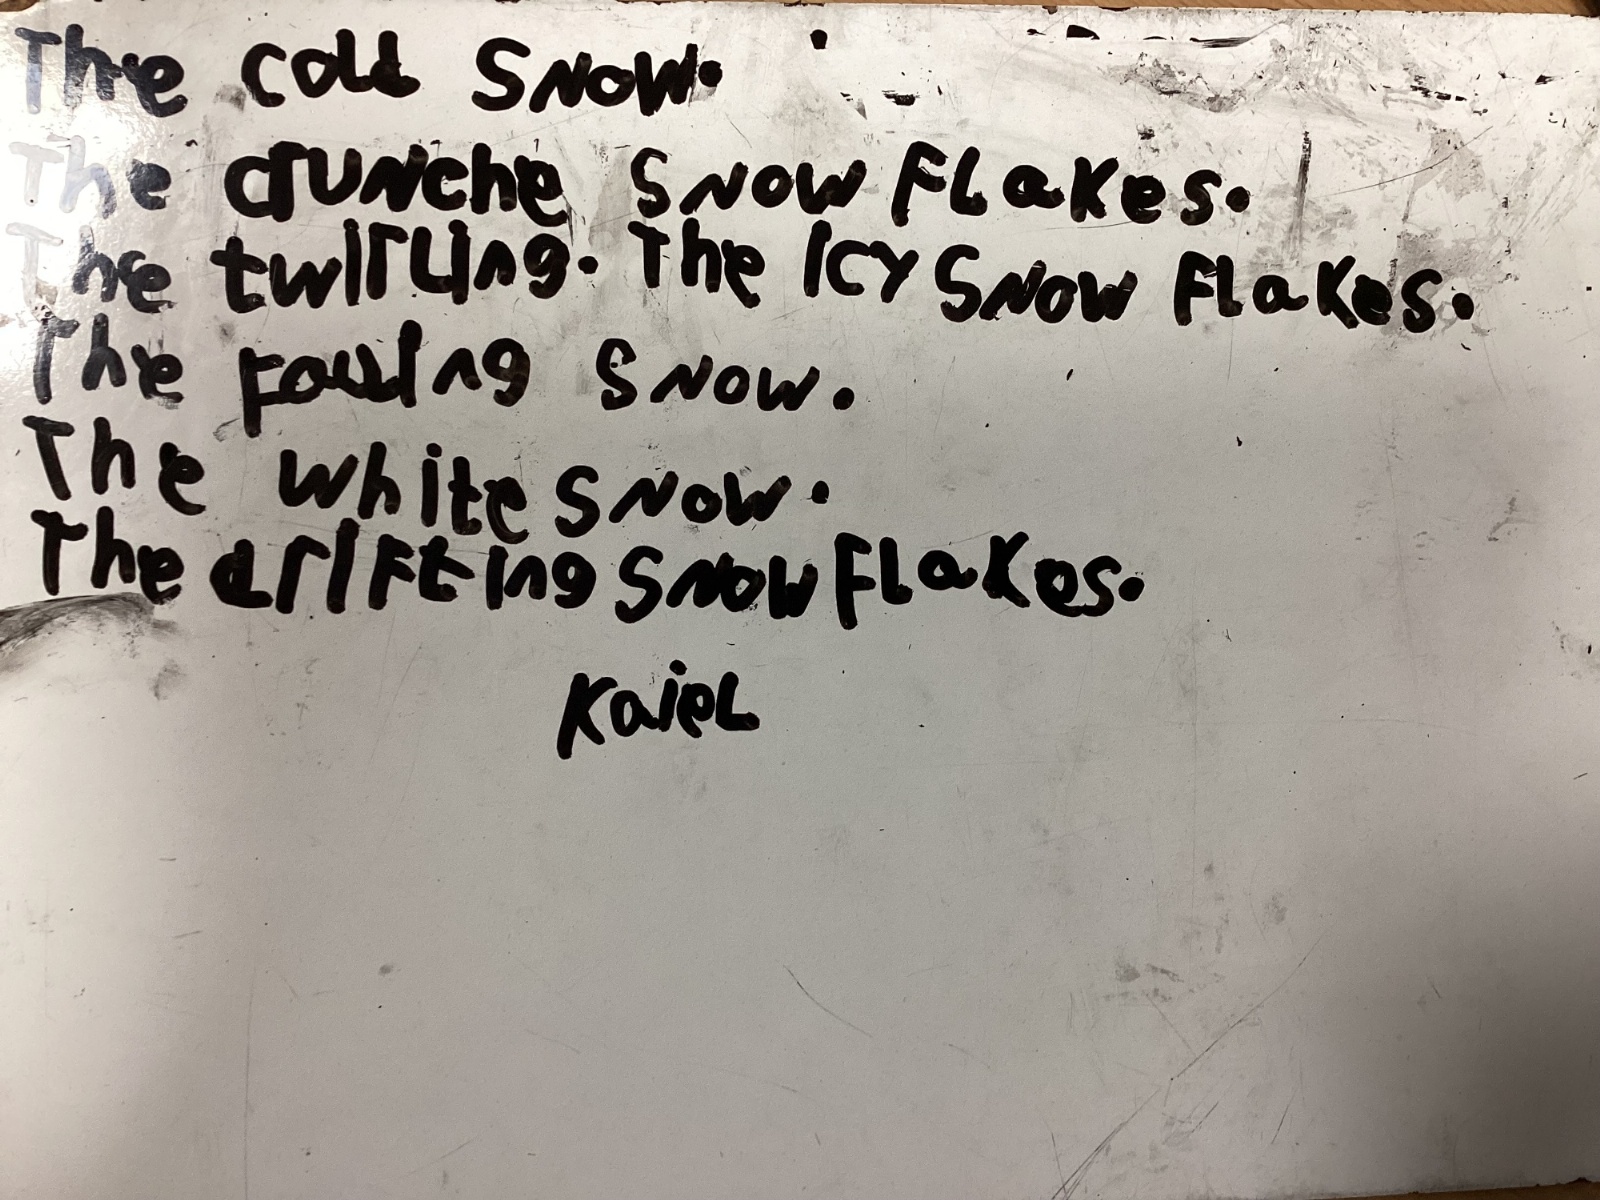 The cold snow.
The crunche snow flakes.
The twirling. The icy snow flakes.
The fowling snow.
The white snow.
The drifting snow flakes.
Kaiel